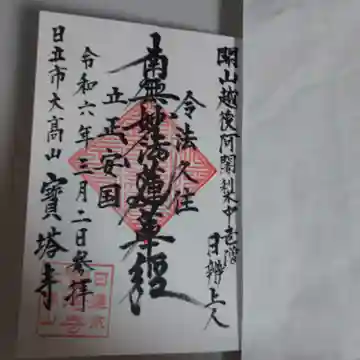 開山越後阿闍梨中老僧
日辨上人
令法久住
南無妙法蓮華經
立正安国
令和六年三月二日参拜
日立市大高山寶塔寺